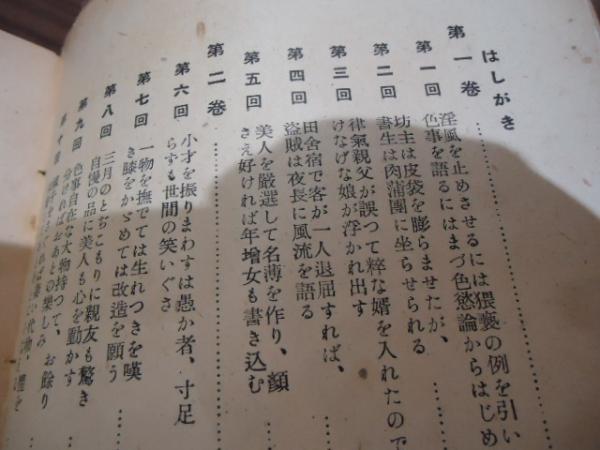 はしがき
第一巻
第一回 淫風を止めさせるには猥褻の例を引い
色事を語るにはまづ色慾論からはじめ
第二回 坊主は皮袋を膨らませたが、
書生は肉蒲團に坐らせられる
第三回 律氣親父が誤つて粋な婿を入れたので
けなげな娘が浮かれ出す
第四回 田舎宿で客が一人退屈すれば、
盗賊は夜長に風流を語る
第五回 美人を厳選して名薄を作り、顔
さえ好ければ年増女も書き込む
第二巻
第六回 小才を振りまわすは愚か者、寸足
らずも世間の笑いぐさ
第七回 一物を撫でては生れつきを嘆
き膝をかゞめては改造を願う
第八回 三月のとぢこもりに親友も驚き
自慢の品に美人も心を動かす
第九回 色事自在な大物持つて、お餘り
分ければおあとの樂しみ
第十回